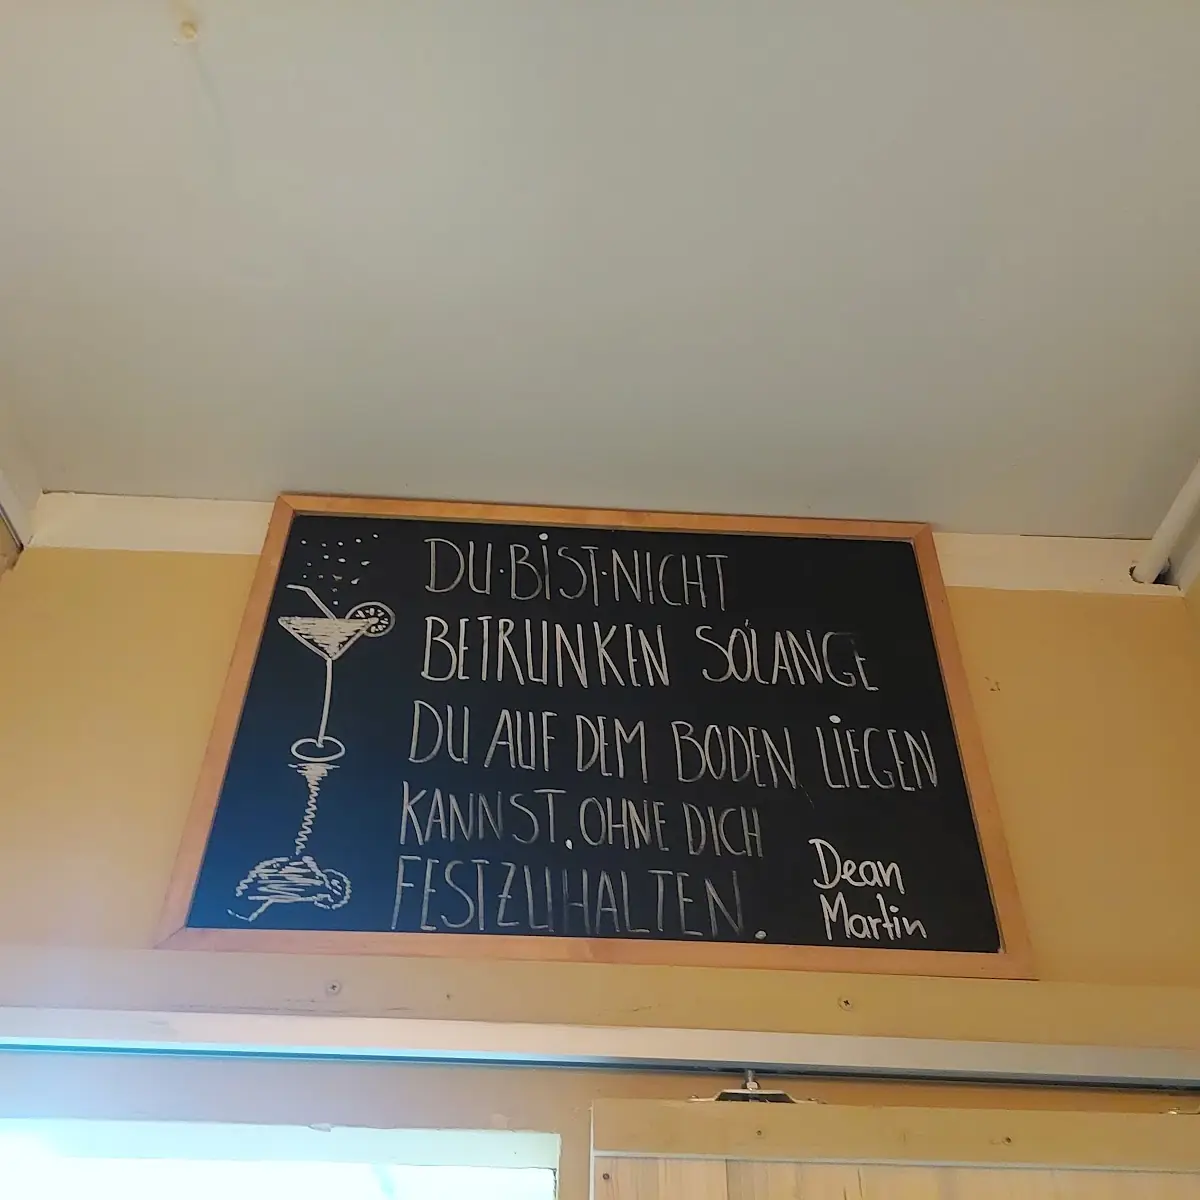 DU·BiST·NICHT
BETRUNKEN SOLANGE
DU AUF DEM BODEN LiEGEN
KANNST. OHNE DICH
FESTZUHALTEN.
Dean
Martin